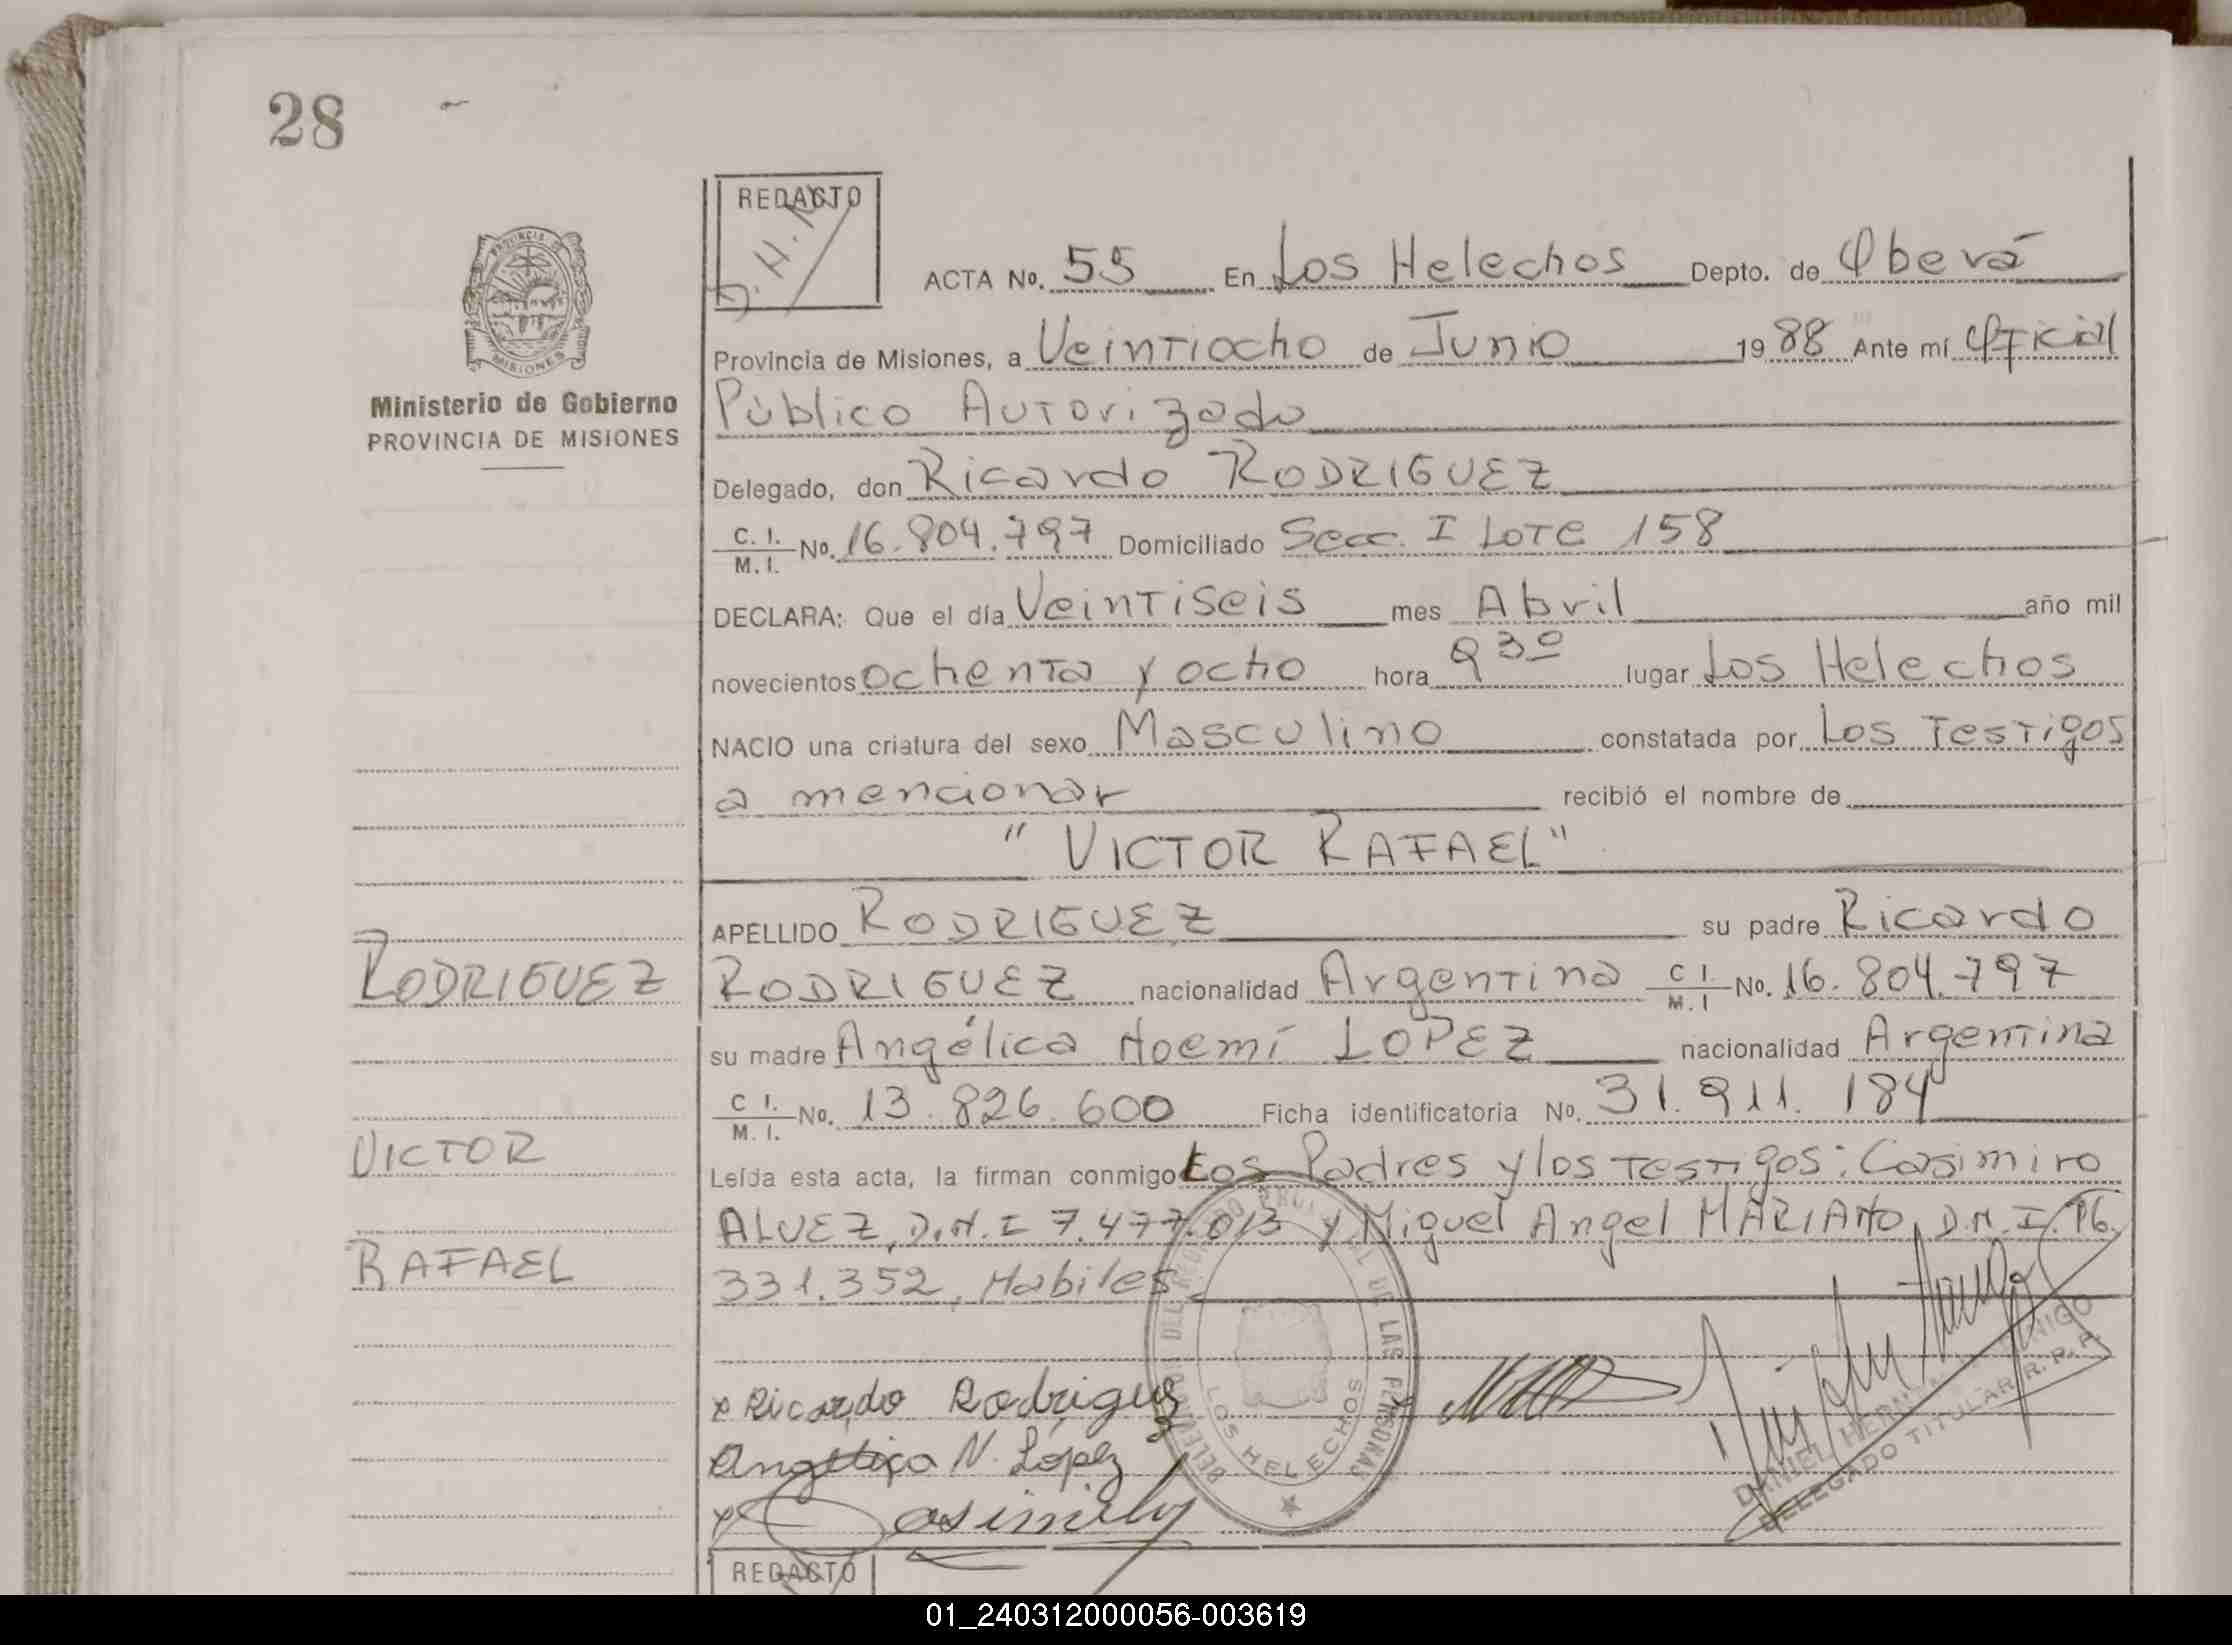 28
REDACTO
D.H.N
ACTA No. 55 En Los Helechos Depto. de Oberá
PROVINCIA DE
MISIONES
Provincia de Misiones, a Veintiocho de Junio 1988 Ante mí Oficial
Ministerio de Gobierno
PROVINCIA DE MISIONES
Público Autorizado
Delegado, don Ricardo RODRIGUEZ
C. I. M. I. No. 16.804.797 Domiciliado Secc. I Lote 158
DECLARA: Que el día Veintiseis mes Abril año mil
novecientos ochenta y ocho hora 9 30 lugar Los Helechos
NACIO una criatura del sexo Masculino constatada por Los Testigos
a mencionar recibió el nombre de
"VICTOR RAFAEL"
APELLIDO RODRIGUEZ su padre Ricardo
RODRIGUEZ
RODRIGUEZ nacionalidad Argentina C I. M. I No. 16.804.797
su madre Angélica Noemí LOPEZ nacionalidad Argentina
C I. M. I. No. 13.826.600 Ficha identificatoria No. 31.911.184
VICTOR
Leída esta acta, la firman conmigo Los Padres y los testigos: Casimiro
ALVEZ, D.N.I 7.477.013 y Miguel Angel MARIANO, D.N.I. 16.
RAFAEL
331.352, Habiles
x Ricardo Rodriguez
Angélica N. López
x Casimiro
DEL REGISTRO PROVINCIAL DE LAS PERSONAS
LOS HELECHOS
DANIEL
DELEGADO TITULAR R. P. P.
REDACTO
01_240312000056-003619